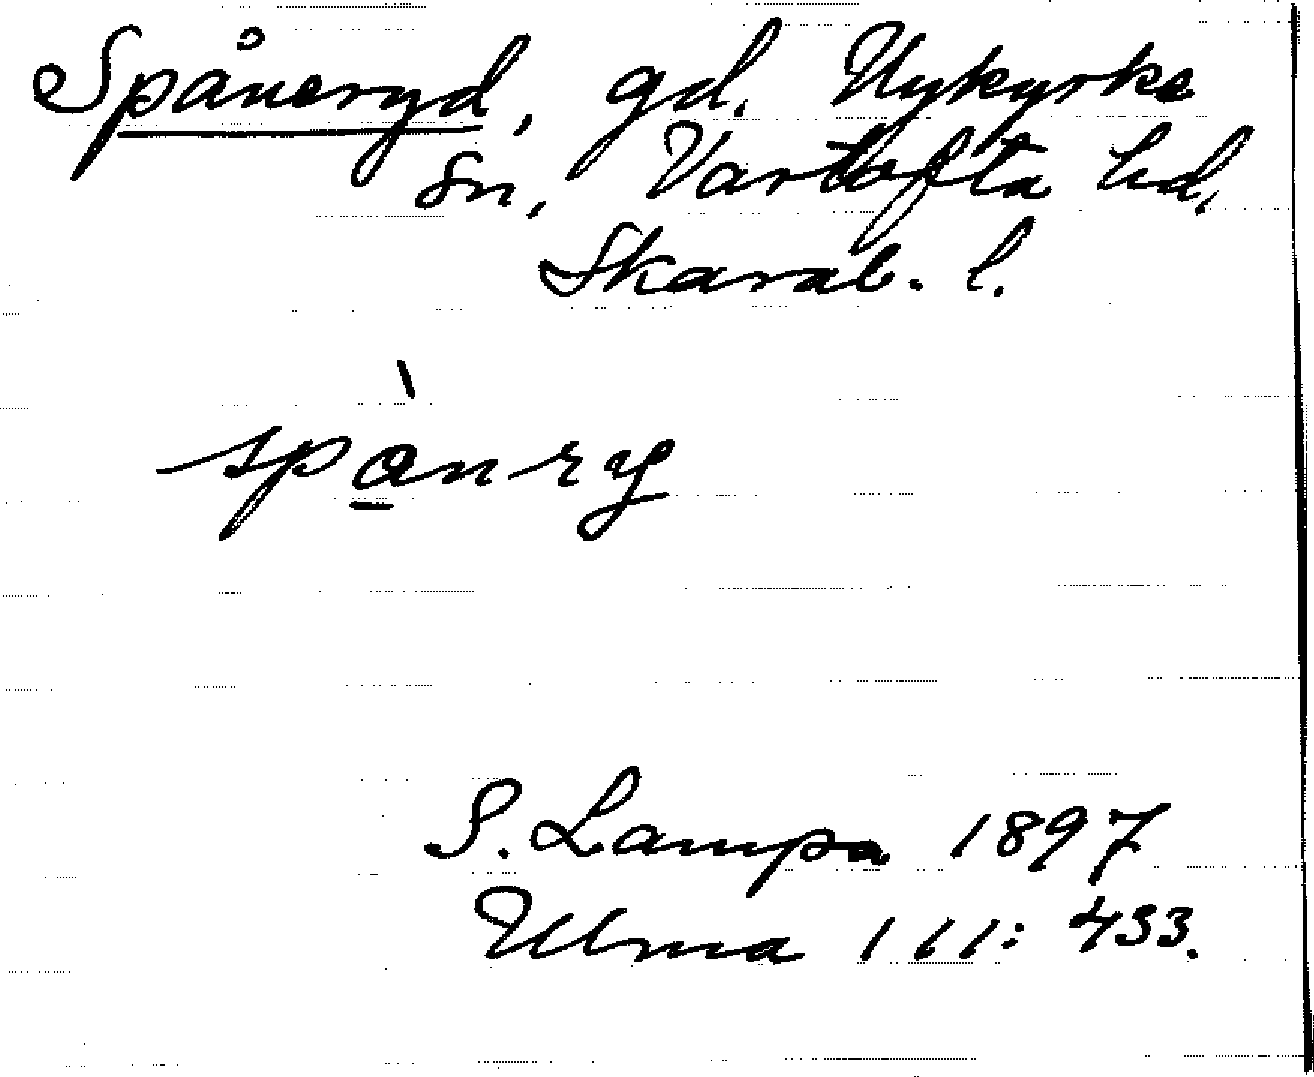 Spåneryd, gd. Nykyrke
sn, Vartofta hd.
Skarab. l.
spànry
S. Lampa 1897
Ulma 111: 433.